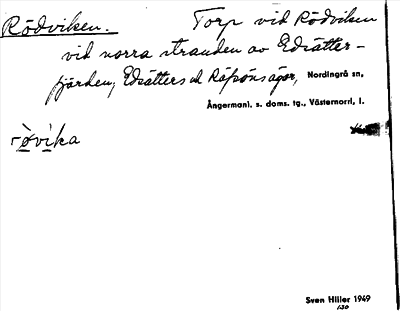 Rödviken. Torp vid Rödviken
vid norra stranden av Edsätter-
fjärden, Edsätters och Räfsöns ägor, Nordingrå sn,
Ångermanl. s. doms. tg., Västernorrl. l.
rövika
Sven Hiller 1949